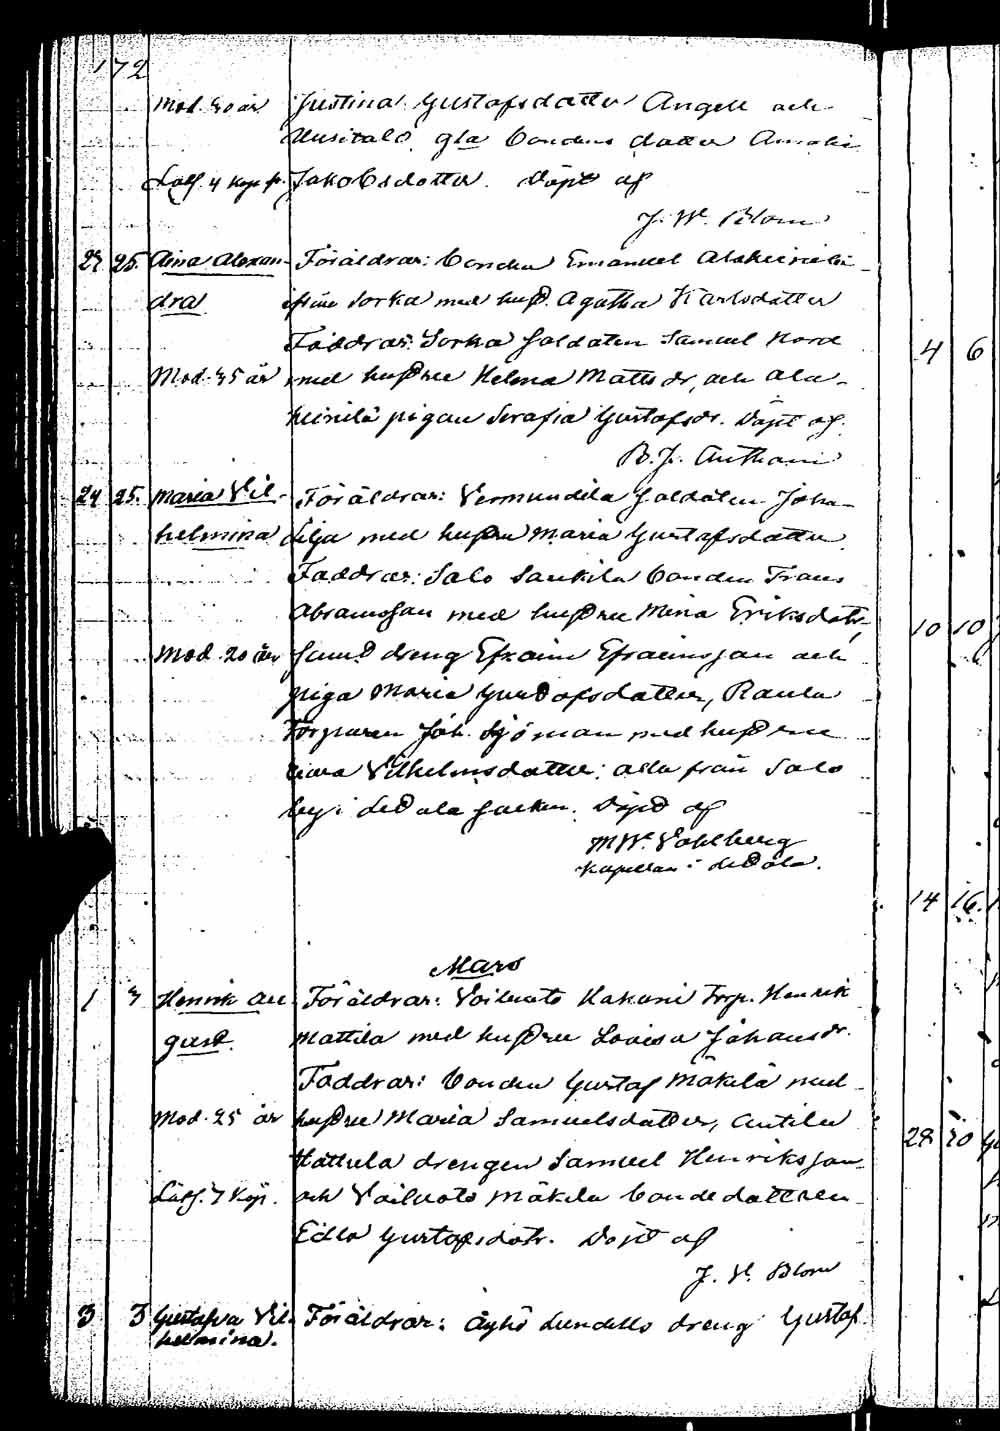 172
Mod. 30 år Justina Gustafsdatter Angell och
Uusitalo gla bondens datter Amalia
Lösf. 4 kop. Jakobsdotter. Döpt af
J. W. Blom
25. Aina Alexan- Föräldrar: bonden Emanuel Alaheinilä
dra Sorka med hustr. Agatha Karlsdatter
Faddrar: Sorka Soldaten Samuel Nord
Mod. 35 år med hustru Helena Matts dr, och Ala-
heinilä pigan Serafia Gustafsdr. Döpt af
B. J. Anthoni
24 25. Maria Vil- Föräldrar: Vermundila Soldaten Joha-
helmina Lilja med hustru Maria Gustafsdatter
Faddrar: Salo bonden Frans
Abramsson med hustru Mina Eriksdatr,
Mod. 20 år dreng Efraim Efraimsson och
piga Maria Gustafsdatter, Rauta
Torparen Joh. Sjöman med hustru
Vilhelmsdatter; alla från Salo
by i Letala Socken. Döpt af
M W. Vahlberg
Kapellan i Letala.
Mars
1 3 Henrik Au- Föräldrar: Voiluoto Kakoni Torp. Henrik
gust. Mattila med hustru Lovisa Johansdr.
Faddrar: bonden Gustaf Mäkilä med
Mod. 25 år hustru Maria Samuelsdatter, Antila
Hattula drengen Samuel Henriksson
Lösf. 7 kop. och Voiluoto Mäkilä bondedattren
Edla Gustafsdatr. Döpt af
J. W. Blom
3 3 Gustafva Vil- Föräldrar: Äyhö Lundells dreng Gustaf
helmina.
4 6
10 10
14 16.
28 30